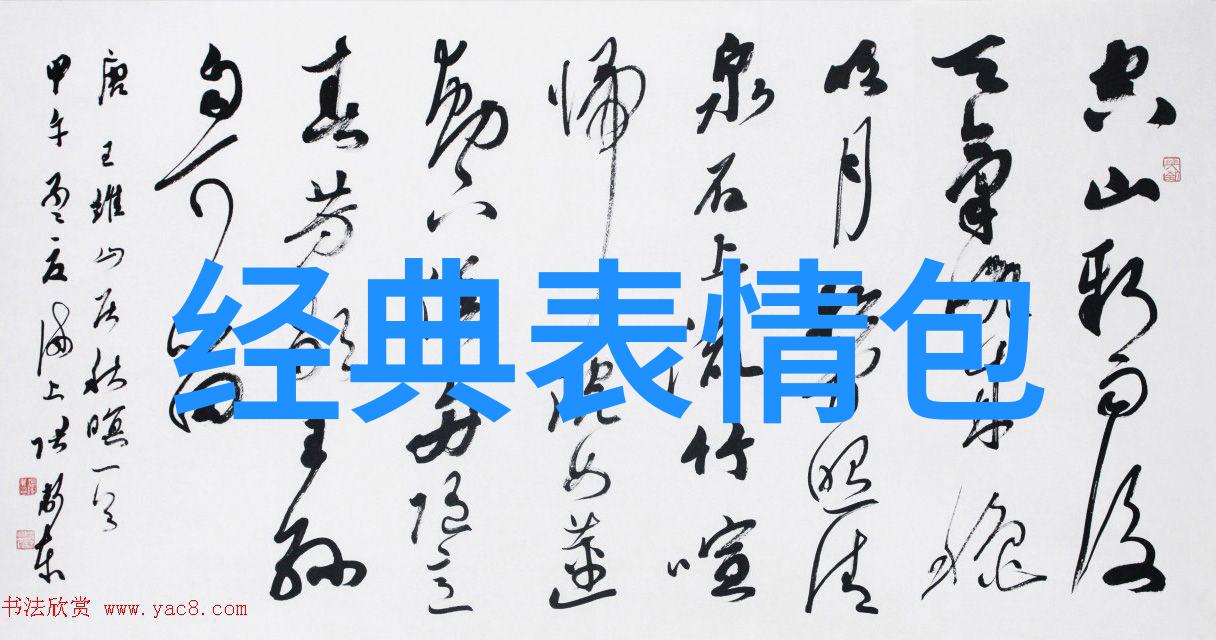 空山新雨後
天氣晚来秋
明月松間照清
泉石上流竹喧
归浣女莲
動下漁舟随意
春芳歇王孫
自可留
唐王維山居秋暝一首
甲午孟夏海上张东
经典表情包
书法欣赏 www.yac8.com